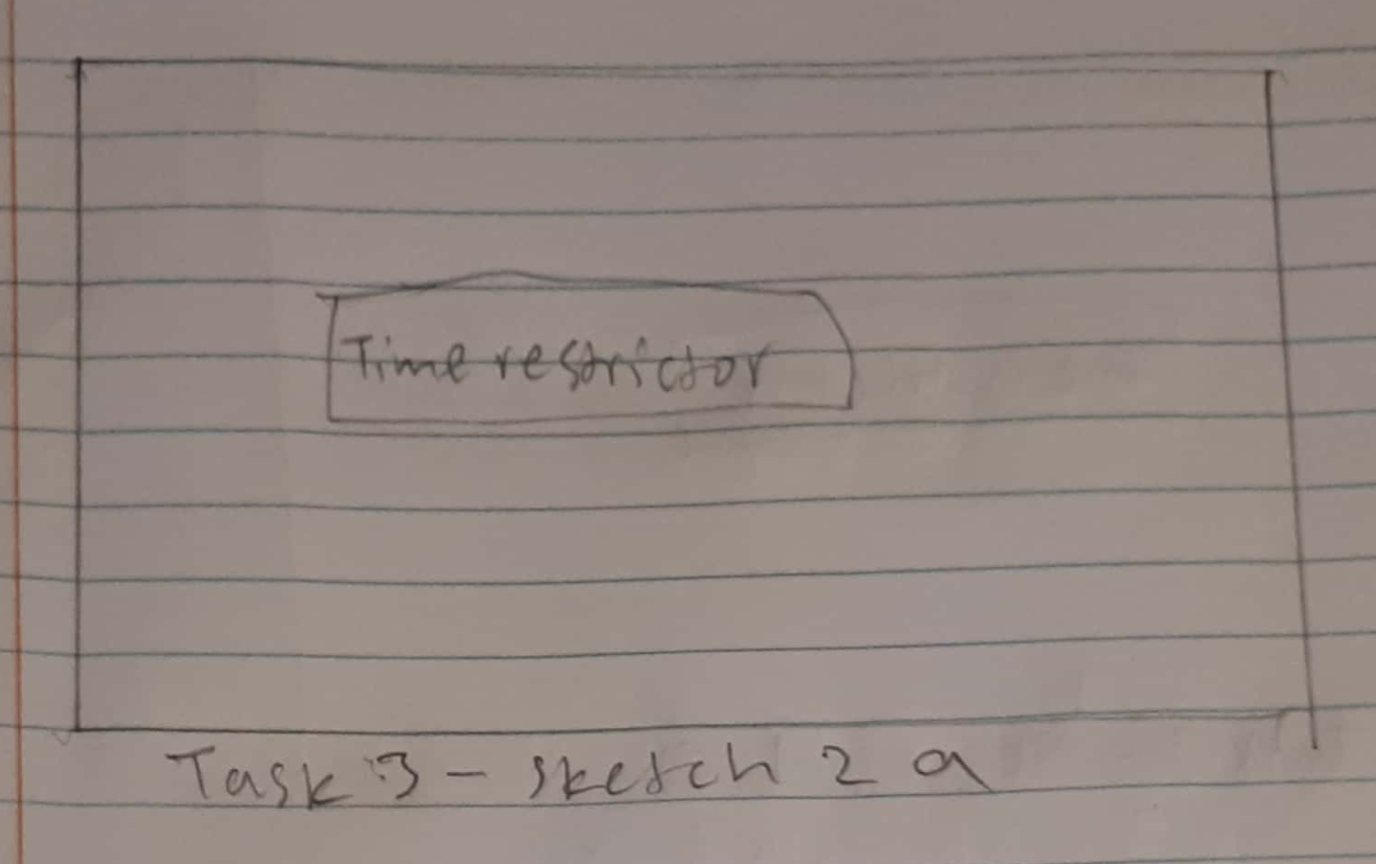 Time restrictor
Task 3 - sketch 2 a